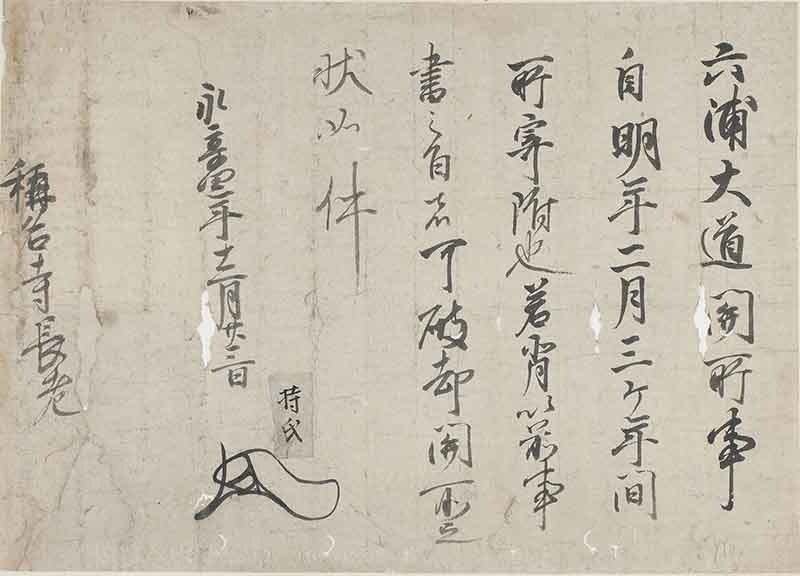 六浦大道関所事
自明年二月三ケ年間
所寄附也若背以前事
書之旨者可破却関所之
状如件
永享四年十二月廿二日
持氏
称名寺長老